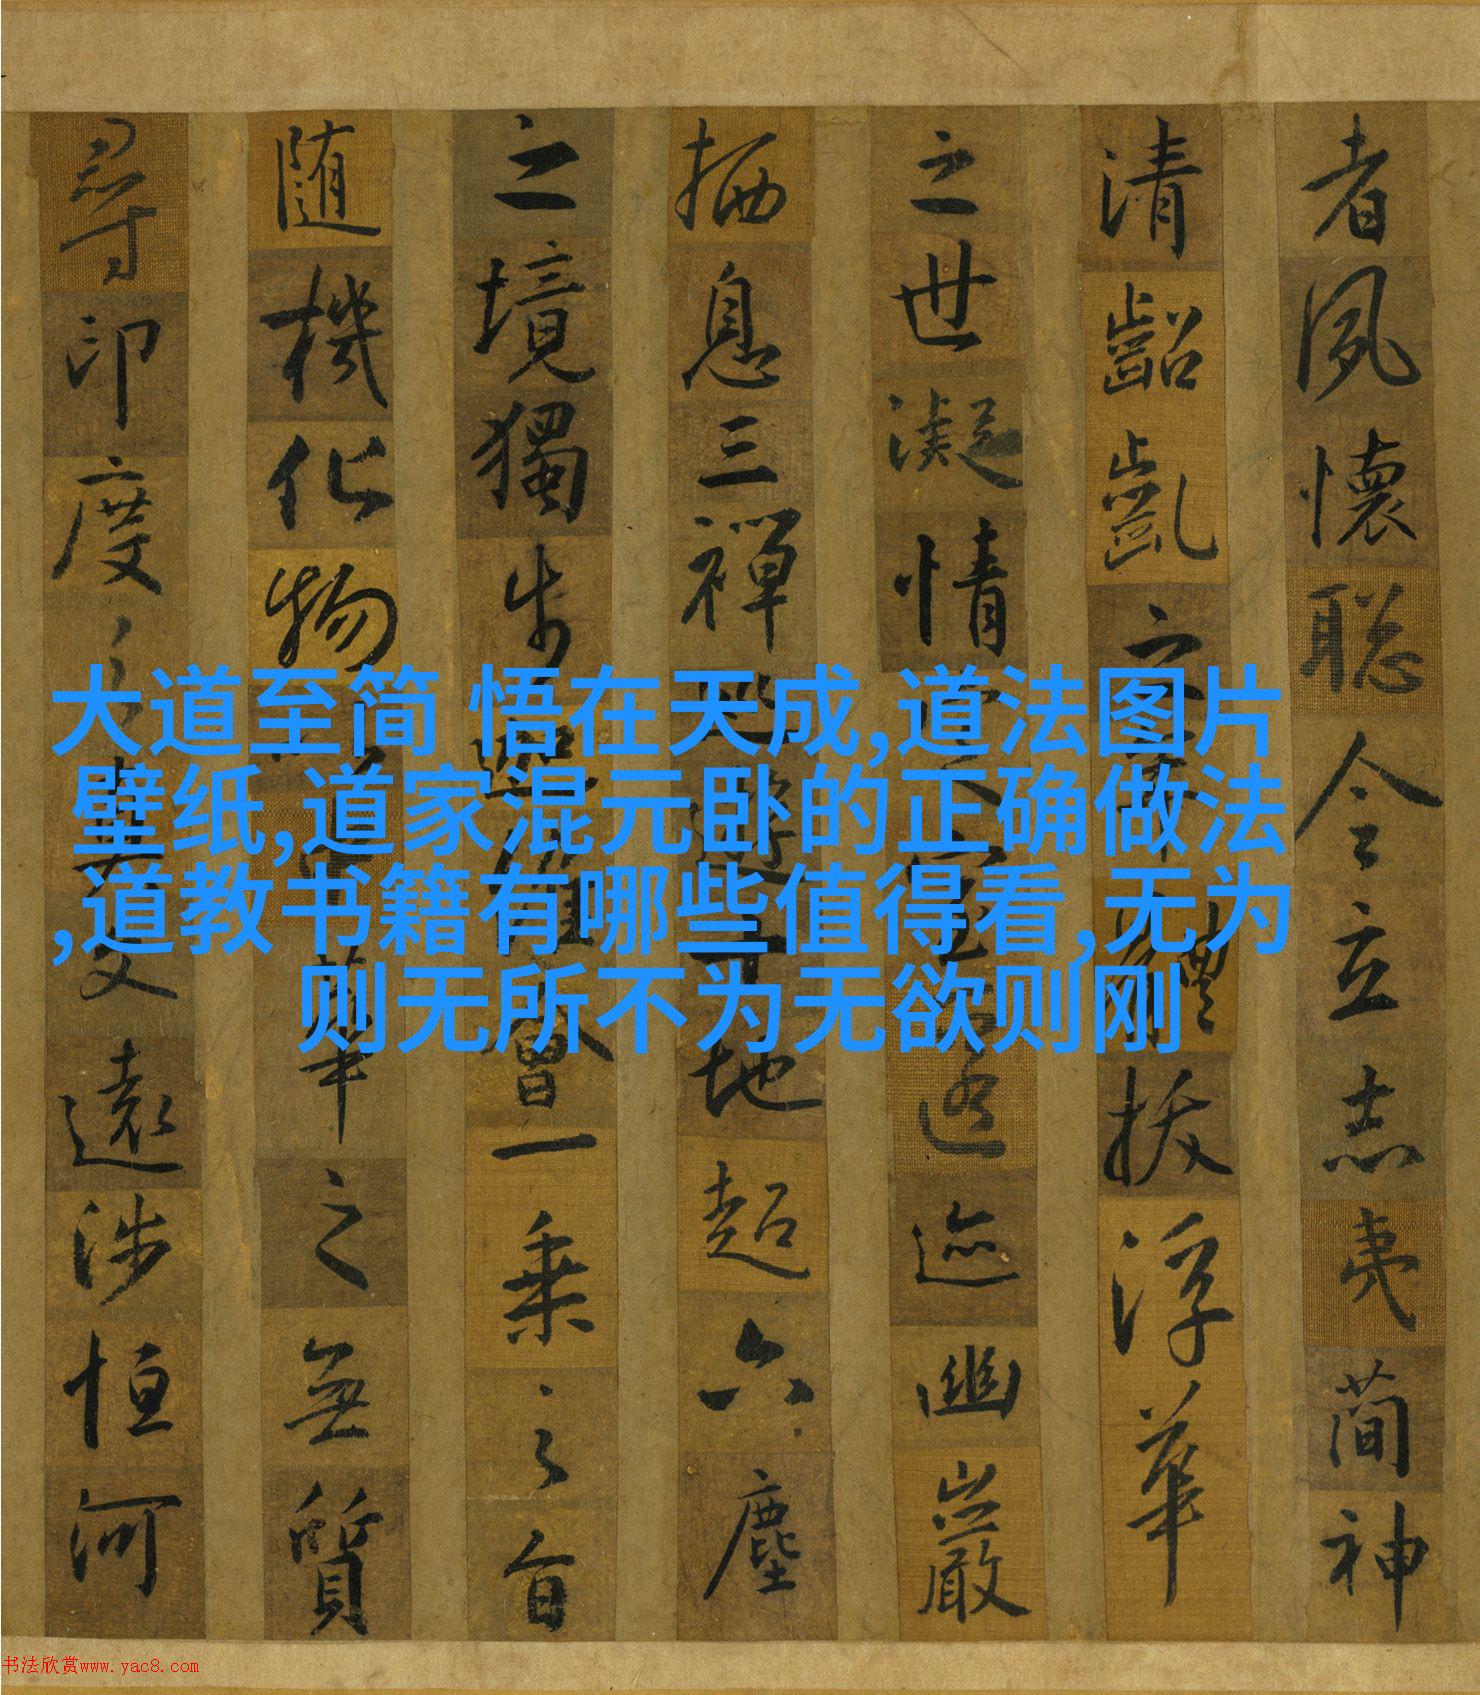 者夙懷聰令立志夷簡神
清齠齔之年體拔浮華
之世凝情定室匿迹幽巖
栖息三禪巡遊十地超六塵
之境獨步迦維會一乘之旨
随機化物以中華之無質
尋印度之真文遠涉恒河
大道至简 悟在天成,道法图片
壁纸,道家混元卧的正确做法
,道教书籍有哪些值得看,无为
则无所不为无欲则刚
书法欣赏www.yac8.com